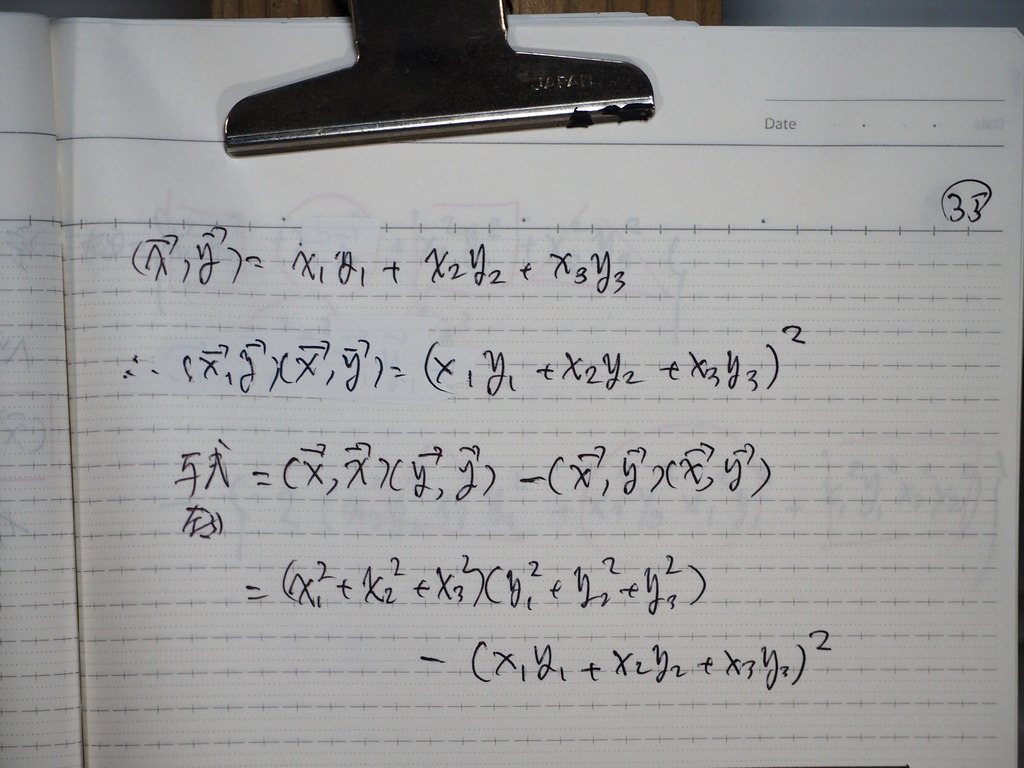 JAPAN
Date
㉟
(x⃗, y⃗) = x₁y₁ + x₂y₂ + x₃y₃
∴ (x⃗, y⃗)(x⃗, y⃗) = (x₁y₁ + x₂y₂ + x₃y₃)²
与式 = (x⃗, x⃗)(y⃗, y⃗) − (x⃗, y⃗)(x⃗, y⃗)
= (x₁² + x₂² + x₃²)(y₁² + y₂² + y₃²)
− (x₁y₁ + x₂y₂ + x₃y₃)²